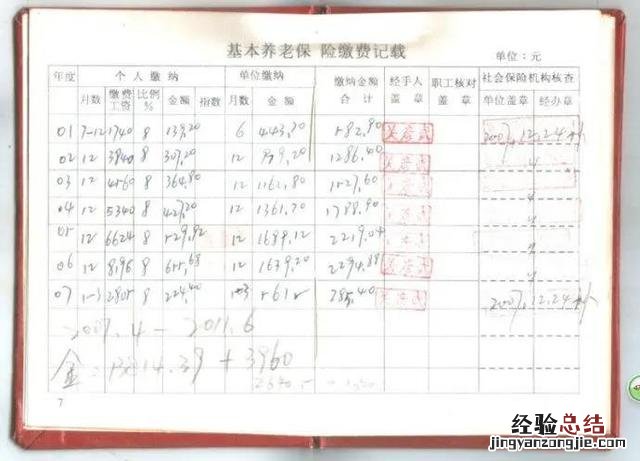 基本养老保 险缴费记载
单位：元
年度 个人缴纳 单位缴纳 缴纳金额合计 经手人盖章 职工核对盖章 社会保险机构核查
月数 缴费工资 比例% 金额 指数 月数 金额 单位盖章 经办章
01 7-12 1740 8 139.20 6 443.70 582.90 2007.12.24
02 12 3840 8 307.20 12 979.20 1286.40
03 12 4560 8 364.80 12 1162.80 1527.60
04 12 5340 8 427.20 12 1361.70 1788.90
05 12 6624 8 529.92 12 1689.12 2219.04
06 12 8196 8 655.68 12 1639.20 2294.88
07 1-3 2805 8 224.40 1-3 561 285.40 2007.12.24
2007.4 — 2011.6
金 14.39 + 3960
7
经验总结
jingyanzongjie.com